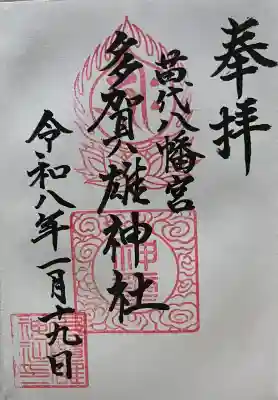 奉拝
苗代八幡宮
多賀雄神社
令和八年一月十九日